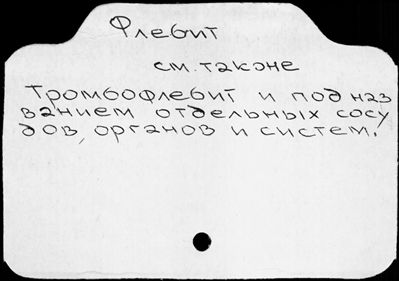 Флебит
см. также
Тромбофлебит и под наз
ванием отдельных сосу
дов, органов и систем.